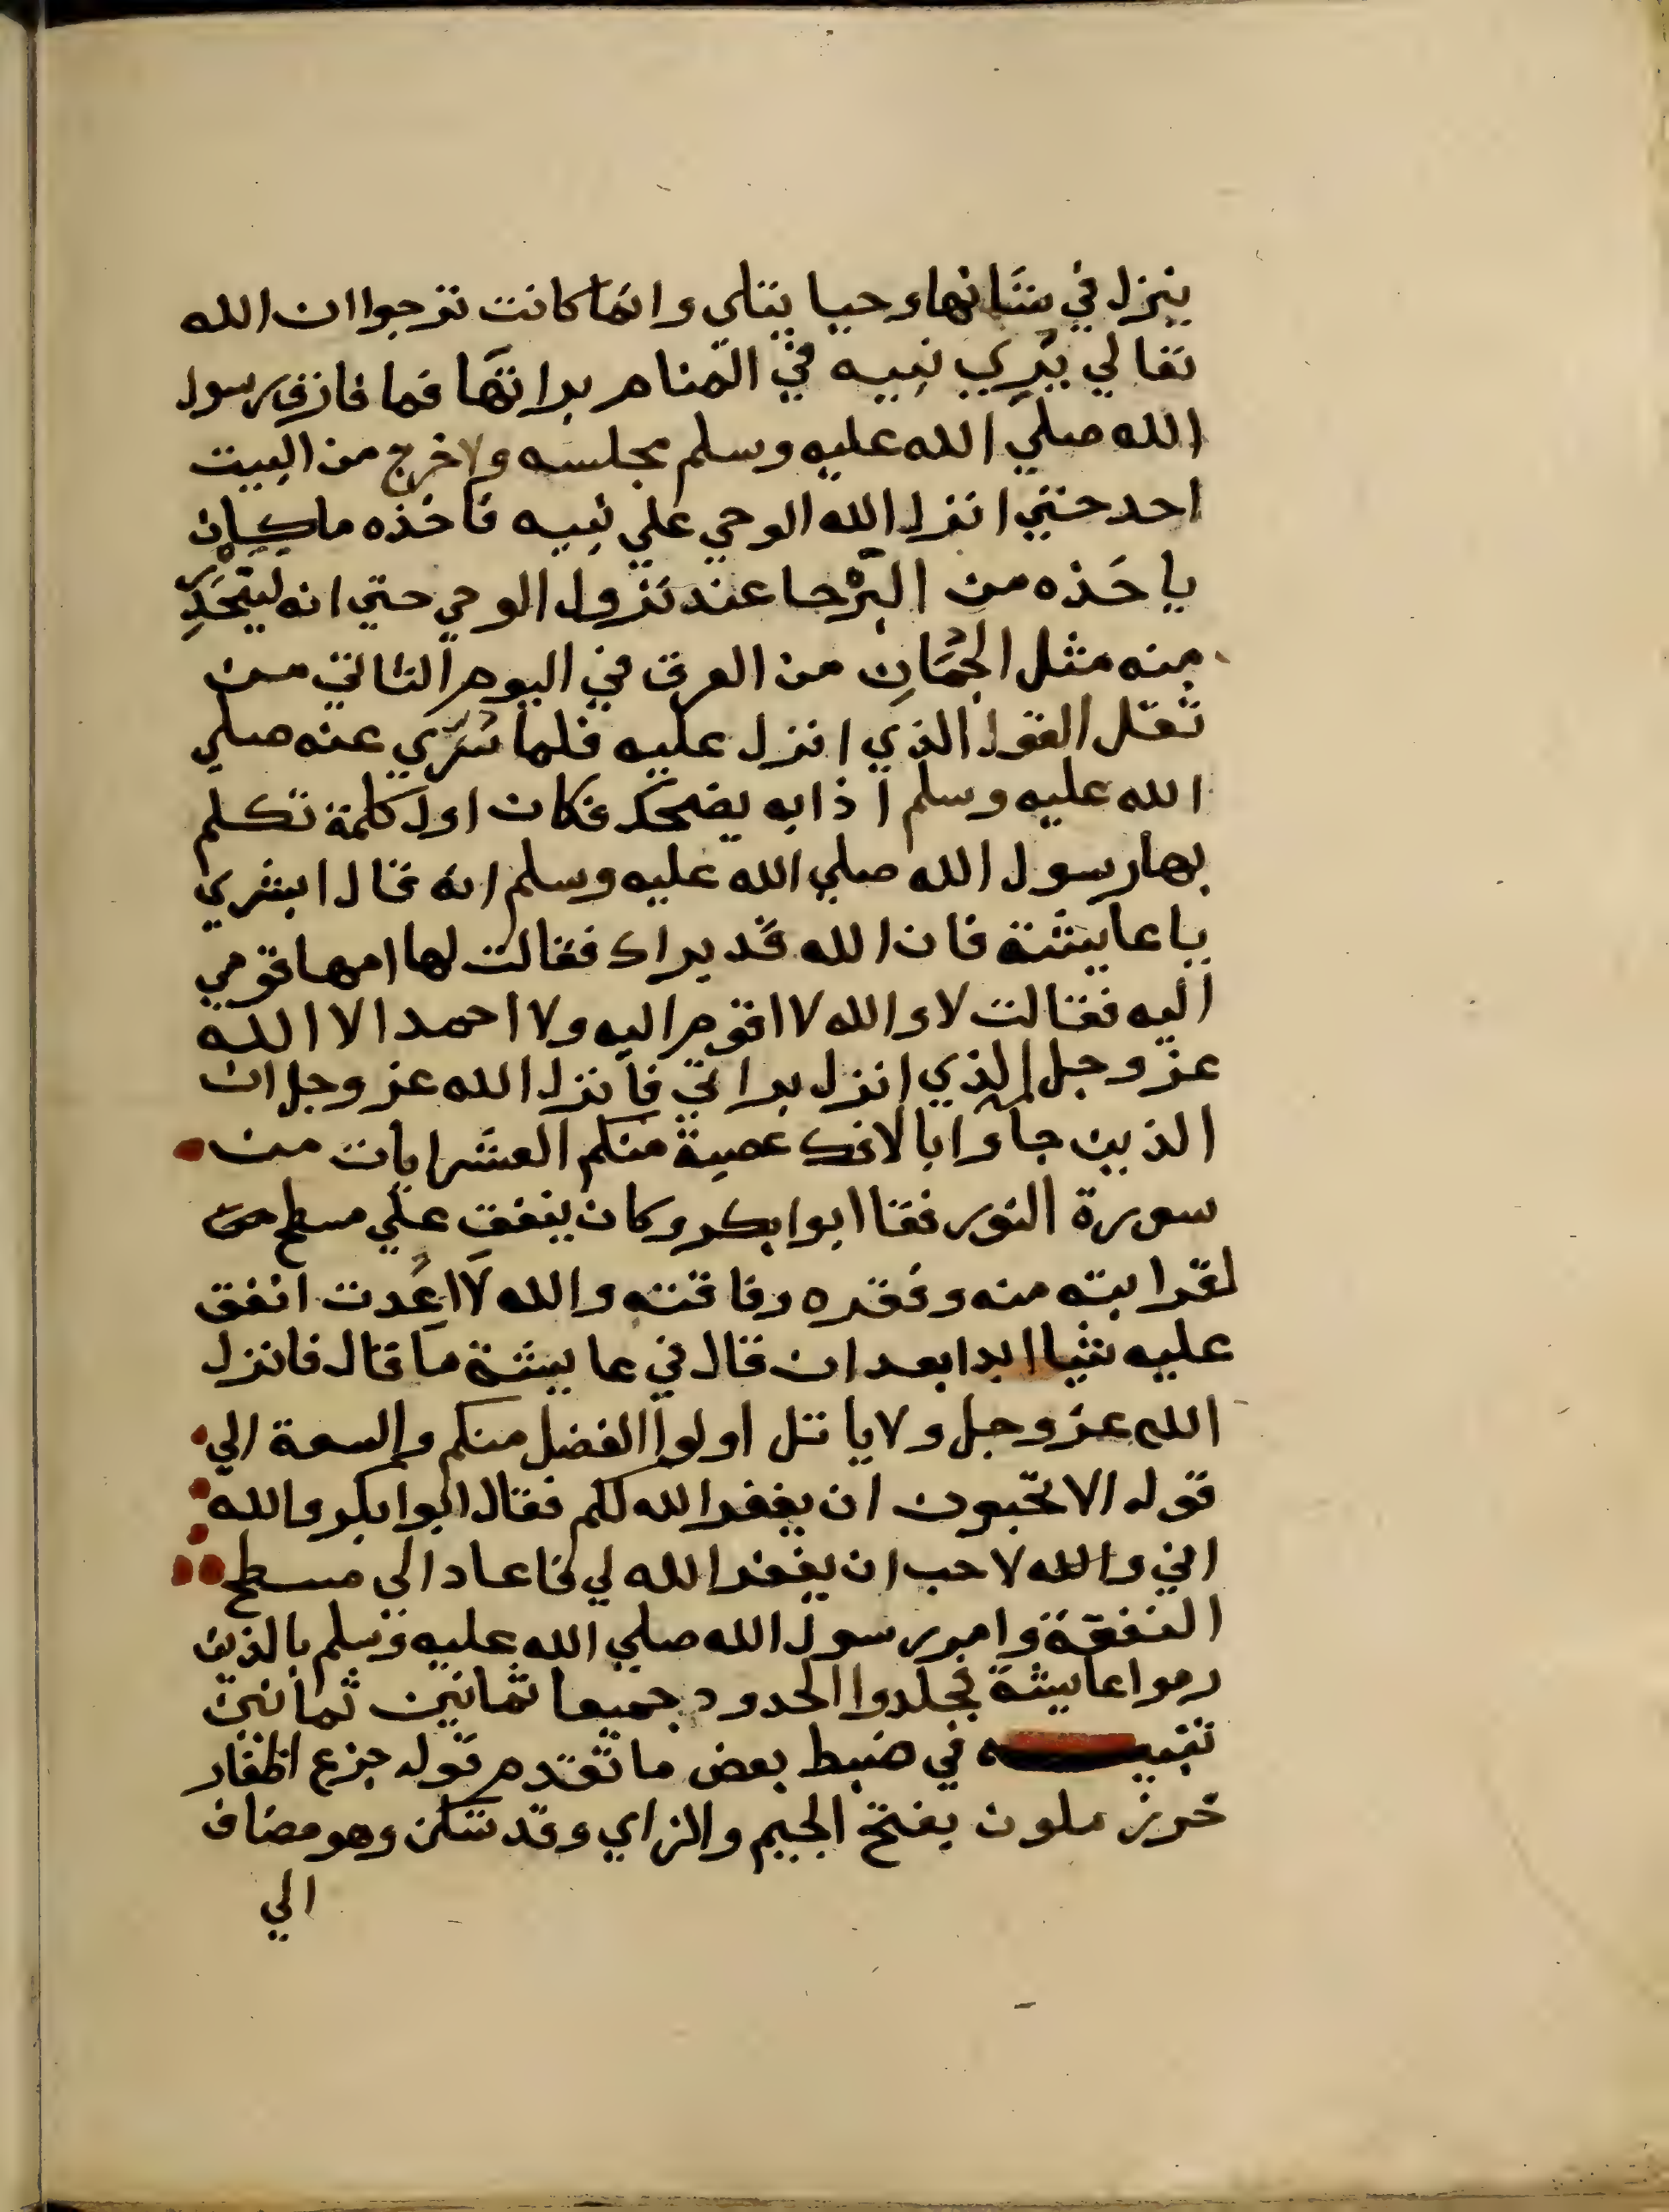 ينزل في شانها وحيا يتلي وانما كانت ترجوا ان الله
تعالي يُرِي نبيه في المنام براتها فما فارق رسول
الله صلي الله عليه وسلم مجلسه ولا خرج من البيت
احد حتي انزل الله الوحي علي نبيه فاخذه ماكان
ياخذه من البُرْحا عند نزول الوحي حتي انه ليتحَدِر
منه مثل الجُمَانِ من العرق في اليوم الشاتي من
ثقل القول الذي انزل عليه فلما سُرّي عنه صلي
الله عليه وسلم اذا به يضحك فكان اول كلمة تكلم
بها رسول الله صلي الله عليه وسلم انه قال ابشري
يا عايشة فان الله قد براك فقالت لها امها قومي
اليه فقالت لا والله لا اقوم اليه ولا احمد الا الله
عز وجل الذي انزل براتي فانزل الله عز وجل ان
الذين جاوا بالافك عصبة منكم العشر ايات من
سورة النور فقا ابوا بكر وكان ينفق علي مسطح
لقرابته منه وفقره وفاقته والله لا اعُدت انفق
عليه شيا ابدا بعد ان قال في عايشة ما قال فانزل
الله عز وجل ولا ياتل اولوا الفضل منكم والسعة الي
قوله الا تحبون ان يغفر الله لكم فقال ابوا بكر والله
اني والله لاحب ان يغفر الله لي فاعاد الي مسطح
النفقة وامر رسول الله صلي الله عليه وسلم بالذين
رموا عايشة فجلدوا الحدود جميعا ثمانين ثمانين
تنبيه في ضبط بعض ما تقدم قوله جزع اظفار
خرز ملون بفتح الجيم والزاي وقد تسكن وهو مضاف
الي